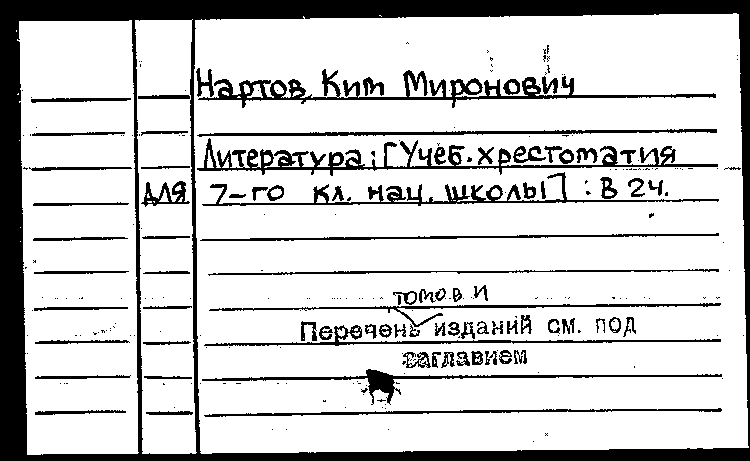 Нартов, Ким Миронович
Литература: [Учеб. хрестоматия
для 7-го кл. нац. школы] : В 2ч.
томов и
Перечень изданий см. под
заглавием